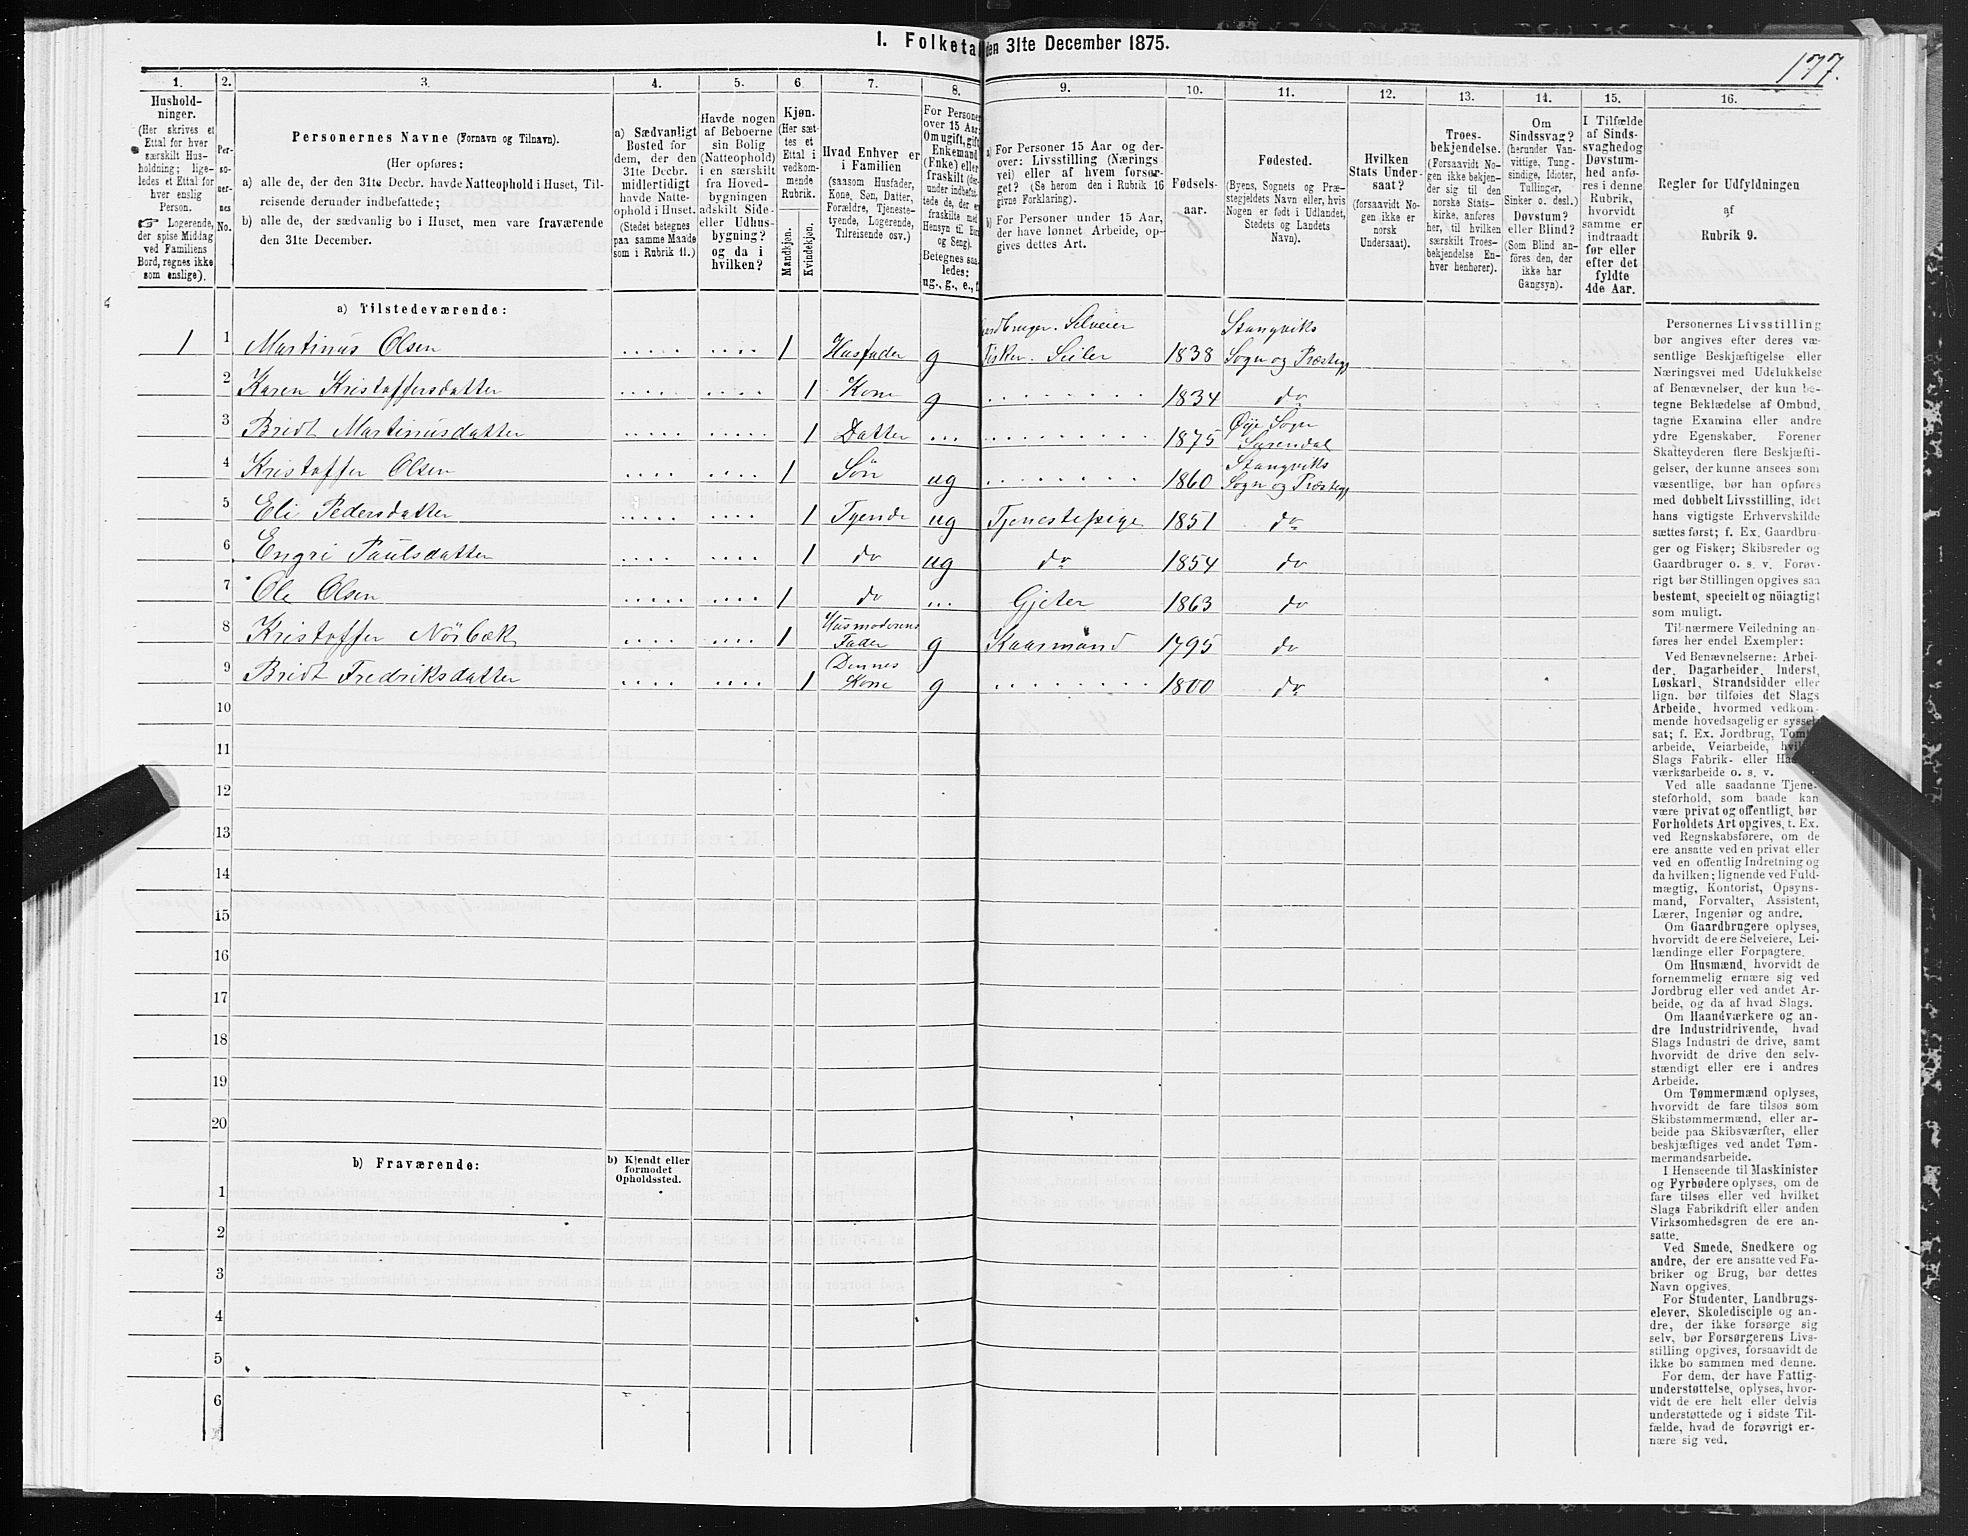 I. Folketa
den 31te December 1875.
177.
1.
2.
3.
4.
5.
6
7.
8.
9.
10.
11.
12.
13.
14.
15.
16.
Hushold-
ninger.
(Her skrives et
Ettal for hver
særskilt Hus-
holdning; lige-
ledes et Ettal for
hver enslig
Person.
Logerende,
der spise Middag
ved Familiens
Bord, regnes ikke
som enslige).
Per-
so-
ner-
nes
No.
Personernes Navne (Fornavn og Tilnavn).
(Her opføres:
a) alle de, der den 31te Decbr. havde Natteophold i Huset, Til-
reisende derunder indbefattede;
b) alle de, der sædvanlig bo i Huset, men vare fraværende
den 31te December.
a) Sædvanligt
Bosted for
dem, der den
31te Decbr.
midlertidigt
havde Natte-
ophold i Huset.
(Stedet betegnes
paa samme Maade
som i Rubrik 11.)
Havde nogen
af Beboerne
sin Bolig
(Natteophold)
i en særskilt
fra Hoved-
bygningen
adskilt Side-
eller Udhus-
bygning?
og da i
hvilken?
Kjøn.
(Her sæt-
tes et
Ettal i
vedkom-
mende
Rubrik.
Mandkjøn.
Kvindekjøn.
Hvad Enhver er
i Familien
(saasom Husfader,
Kone, Søn, Datter,
Forældre, Tjeneste-
tyende, Logerende,
Tilreisende osv.)
For Personer
over 15 Aar:
Om ugift, gift,
Enkemand
(Enke) eller
fraskilt
Betegnes saa-
ledes:
ug., g., e., f.
a) For Personer 15 Aar og der-
over: Livsstilling (Nærings
vei) eller af hvem forsør-
get? (Se herom den i Rubrik 16
givne Forklaring).
b) For Personer under 15 Aar,
der have lønnet Arbeide, op-
gives dettes Art.
Fødsels-
aar.
Fødested.
(Byens, Sognets og Præ-
stegjeldets Navn eller, hvis
Nogen er født i Udlandet,
Stedets og Landets
Navn).
Hvilken
Stats Under-
saat?
(forsaavidt No-
gen ikke er
norsk
Undersaat).
Troes-
bekjendelse.
(Forsaavidt No-
gen ikke bekjen-
der sig til den
norske Stats-
kirke, anføres
her, til hvilken
særskilt Troes-
bekjendelse En-
hver henhører).
Om
Sindssvag?
(herunder Van-
vittige, Tung-
sindige, Idioter,
Tullinger,
Sinker o. desl.)
Døvstum?
eller Blind?
(Som Blind an-
føres den, der
ikke har
Gangsyn).
I Tilfælde
af Sinds-
svaghedog
Døvstum-
hed anfø-
res i denne
Rubrik,
hvorvidt
samme er
indtraadt
før eller
efter det
fyldte
4de Aar.
Regler for Udfyldningen
af
Rubrik 9.
a) Tilstedeværende:
1 1 Martinus Olsen 1 Husfader g Gaardbruger. Selveier
Fisker. Seiler 1838 Stangviks
Sogn og Præstegj
2 Karen Kristoffersdatter 1 Kone g 1834 do
3 Bridt Martinusdatter 1 Datter ... 1875 Øije Sogn
Surendal
4 Kristoffer Olsen 1 Søn ug 1860 Stangviks
Sogn og Præstegj
5 Eli Pedersdatter 1 Tyende ug Tjenestepige 1851 do
6 Engri Paulsdatter 1 do ug do 1854 do
7 Ole Olsen 1 do ... Gjeter 1863 do
8 Kristoffer Nörbæk 1 Husmoderens
Fader g Kaarmand 1795 do
9 Bridt Fredriksdatter 1 Dennes
Kone g 1800 do
10
11
12
13
14
15
16
17
18
19
20
b) Fraværende:
b) Kjendt eller
formodet
Opholdssted.
1
2
3
4
5
6
Personernes Livsstilling
bør angives efter deres væ-
sentlige Beskjæftigelse eller
Næringsvei med Udelukkelse
af Benævnelser, der kun be-
tegne Beklædelse af Ombud,
tagne Examina eller andre
ydre Egenskaber. Forener
Skatteyderen flere Beskjæfti-
gelser, der kunne ansees som
væsentlige, bør han opføres
med dobbelt Livsstilling, idet
hans vigtigste Erhvervskilde
sættes først; f. Ex. Gaardbru-
ger og Fisker; Skibsreder og
Gaardbruger o. s. v. Forøv-
rigt bør Stillingen opgives saa
bestemt, specielt og nöiagtigt
som muligt.
Tilnærmere Veiledning an-
føres her endel Exempler:
Ved Benævnelserne: Arbei-
der, Dagarbeider, Inderst,
Løskarl, Strandsidder eller
lign. bør tilføies det Slags
Arbeide, hvormed vedkom-
mende hovedsagelig er syssel-
sat; f. Ex. Jordbrug, Tomt-
arbeide, Veiarbeide, hvilket
Slags Fabrik- eller Haand-
værksarbeide o. s. v.
Ved alle saadanne Tjene-
steforhold, som baade kan
være privat og offentligt, bør
Forholdets Art opgives, t. Ex.
ved Regnskabsførere, om de
ere ansatte ved en privat eller
ved en offentlig Indretning og
da hvilken; lignende ved Fuld-
mægtig, Kontorist, Opsyns-
mand, Forvalter, Assistent,
Lærer, Ingeniør og andre.
Om Gaardbrugere oplyses,
hvorvidt de ere Selveiere, Lei-
lændinge eller Forpagtere.
Om Husmænd, hvorvidt de
fornemmelig ernære sig ved
Jordbrug eller ved andet Ar-
beide, og da af hvad Slags.
Om Haandværkere og an-
dre Industridrivende, hvad
Slags Industri de drive, samt
hvorvidt de drive den selv-
stændigt eller ere i andres
Arbeide.
Om Tømmermænd oplyses,
hvorvidt de fare tilsøs som
Skibstømmermænd, eller ar-
beide paa Skibsværfter, eller
beskjæftiges ved andet Tøm-
mermandsarbeide.
I Henseende til Maskinister
og Fyrbødere oplyses, om de
fare tilsøs eller ved hvilket
Slags Fabrikdrift eller anden
Virksomhedsgren de ere an-
satte.
Ved Smede, Snedkere og
andre, der ere ansatte ved Fa-
briker og Brug, bør dettes
Navn opgives.
For Studenter, Landbrugs-
elever, Skoledisciple og an-
dre, der ikke forsørge sig
selv, bør Forsørgerens Livs-
stilling opgives, forsaavidt de
ikke bo sammen med denne.
For dem, der have Fattig-
understøttelse, oplyses, hvor-
vidt de ere helt eller delvis
understøttede og i sidste Til-
fælde, hvad de forøvrigt er-
nære sig ved.